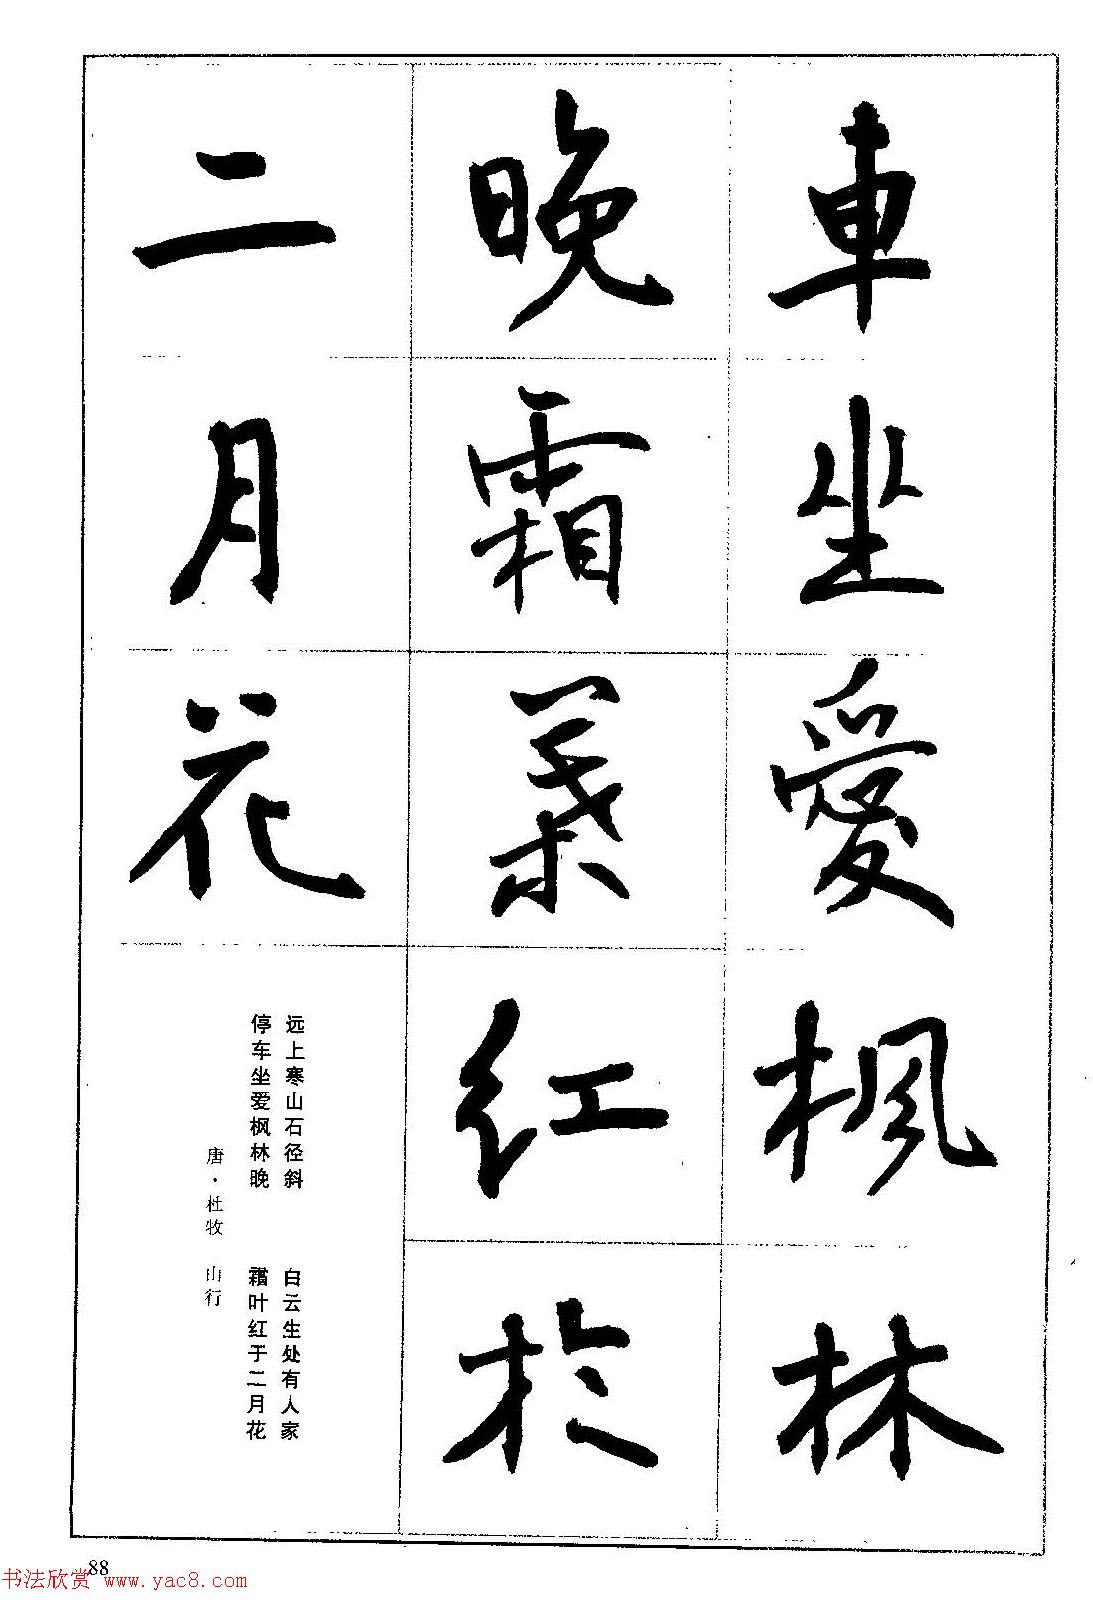 車坐愛楓林
晚霜葉紅於
二月花
远上寒山石径斜 白云生处有人家
停车坐爱枫林晚 霜叶红于二月花
唐·杜牧 山行
88
书法欣赏 www.yac8.com